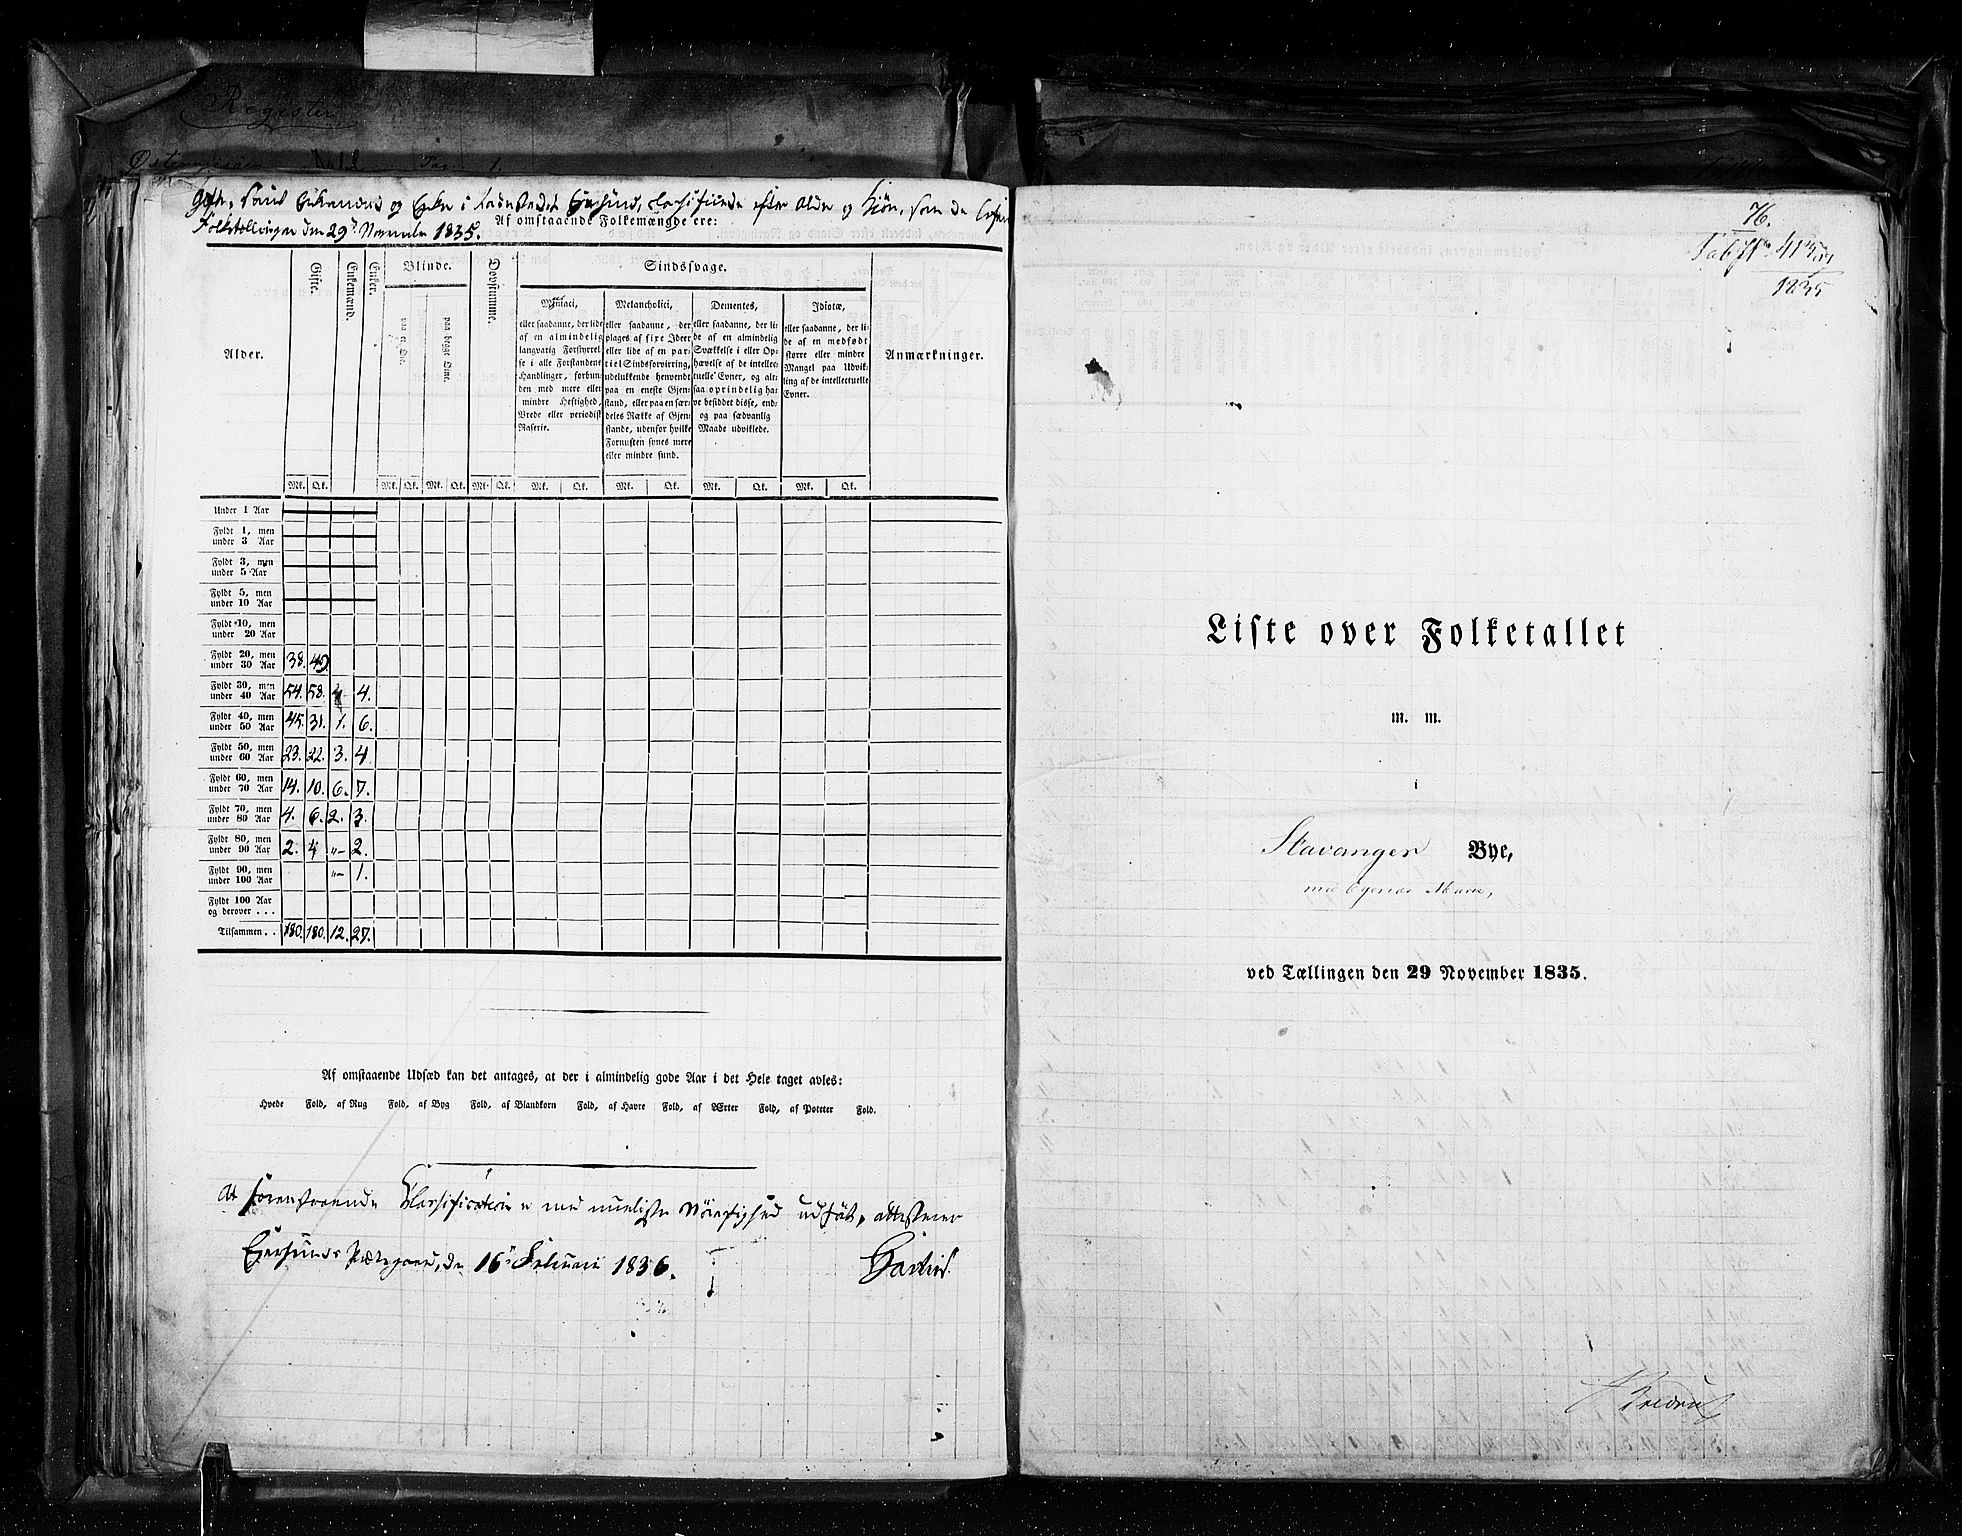 Register
Gifte, samt Enkemænd og Enker i Ladestedet Egersund, classificerede efter Alder og Kjøn, som de befandtes
Af omstaaende Folkemængde ere:
Folketællingen den 29de November 1835.
Alder. Gifte. Enkemænd. Enker. Blinde. Døvstumme. Sindssvage. Anmærkninger.
paa et Øie. paa begge Øine.
Maniaci,
eller saadanne, der lide
af en almindelig
langvarig Forstyrrel-
se i alle Forstandens
Handlinger, forbun-
den med mere eller
mindre Heftighed,
Vrede eller periodisk
Raserie.
Melancholici,
eller saadanne, der
plages af fixe Ideer
eller lide af en par-
tiel Sindsforvirring,
udelukkende henvendt
paa en eneste Gjen-
stand, eller paa en sær-
deles Række af Gjen-
stande, udenfor hvilke
Fornuften synes mere
eller mindre sund.
Dementes,
eller saadanne, der li-
de af en almindelig
Svækkelse i eller Op-
hævelse af de intellec-
tuelle Evner, og alt-
saa oprindelig ha-
ve besiddet disse, end-
og paa sædvanlig
Maade udviklede.
Idiotæ,
eller saadanne, der li-
de af en medfødt
større eller mindre
Mangel paa Udvik-
ling af de intellectuelle
Evner.
Mk. Qk. Mk. Qk. Mk. Qk. Mk. Qk. Mk. Qk. Mk. Qk. Mk. Qk. Mk. Qk.
Under 1 Aar
Fyldt 1, men
under 3 Aar
Fyldt 3, men
under 5 Aar
Fyldt 5, men
under 10 Aar
Fyldt 10, men
under 20 Aar
Fyldt 20, men
under 30 Aar 38. 49.
Fyldt 30, men
under 40 Aar 54. 58. 4.
Fyldt 40, men
under 50 Aar 45. 31. 1. 6.
Fyldt 50, men
under 60 Aar 23. 22. 3. 4
Fyldt 60, men
under 70 Aar 14. 10. 6. 7.
Fyldt 70, men
under 80 Aar 4. 6. 2. 3.
Fyldt 80, men
under 90 Aar 2. 4 "- 2.
Fyldt 90, men
under 100 Aar "- 1.
Fyldt 100 Aar
og derover . . .
Tilsammen . . 180. 180. 12. 27.
Af omstaaende Udsæd kan det antages, at der i almindelig gode Aar i det Hele taget avles:
Hvede Fold, af Rug Fold, af Byg Fold, af Blandkorn Fold, af Havre Fold, af Ærter Fold, af Poteter Fold.
At forenstaaende Classification er med mueligste Nøiagtighed udført, attesterer
Egersunds Præstegaard, den 16de Februarii 1836.
76.
Tab. 41
1835
Liste over Folketallet
m. m.
i
Stavanger Bye,
med Egenæs Mark,
ved Tællingen den 29 November 1835.